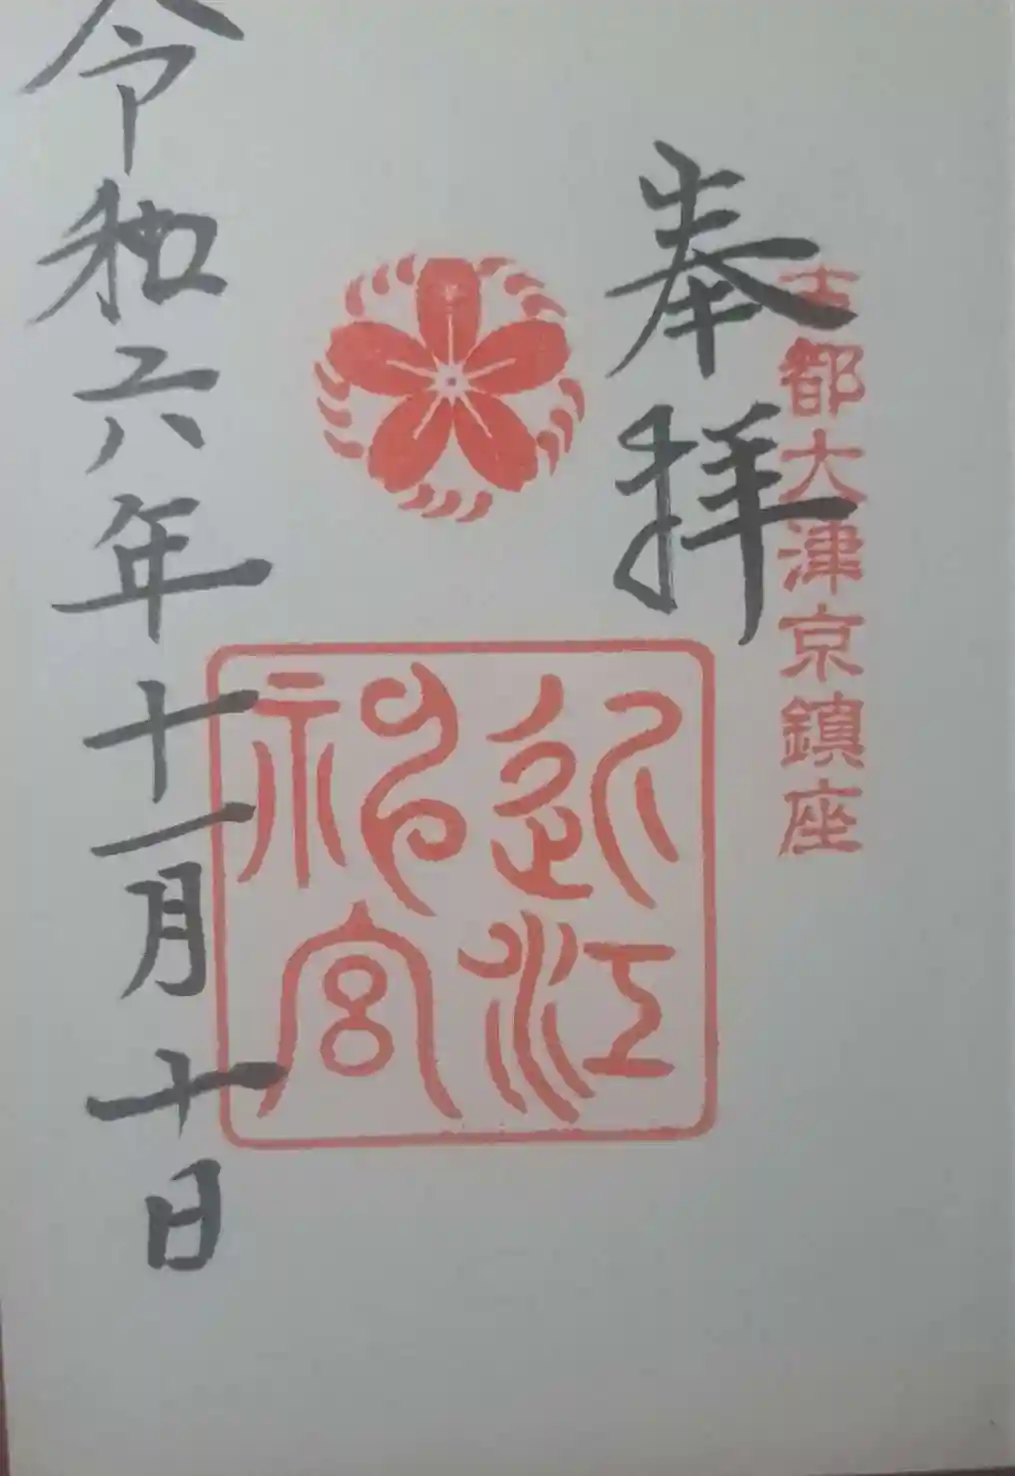 古都大津京鎮座
奉拝
近江
神宮
令和六年十一月十日